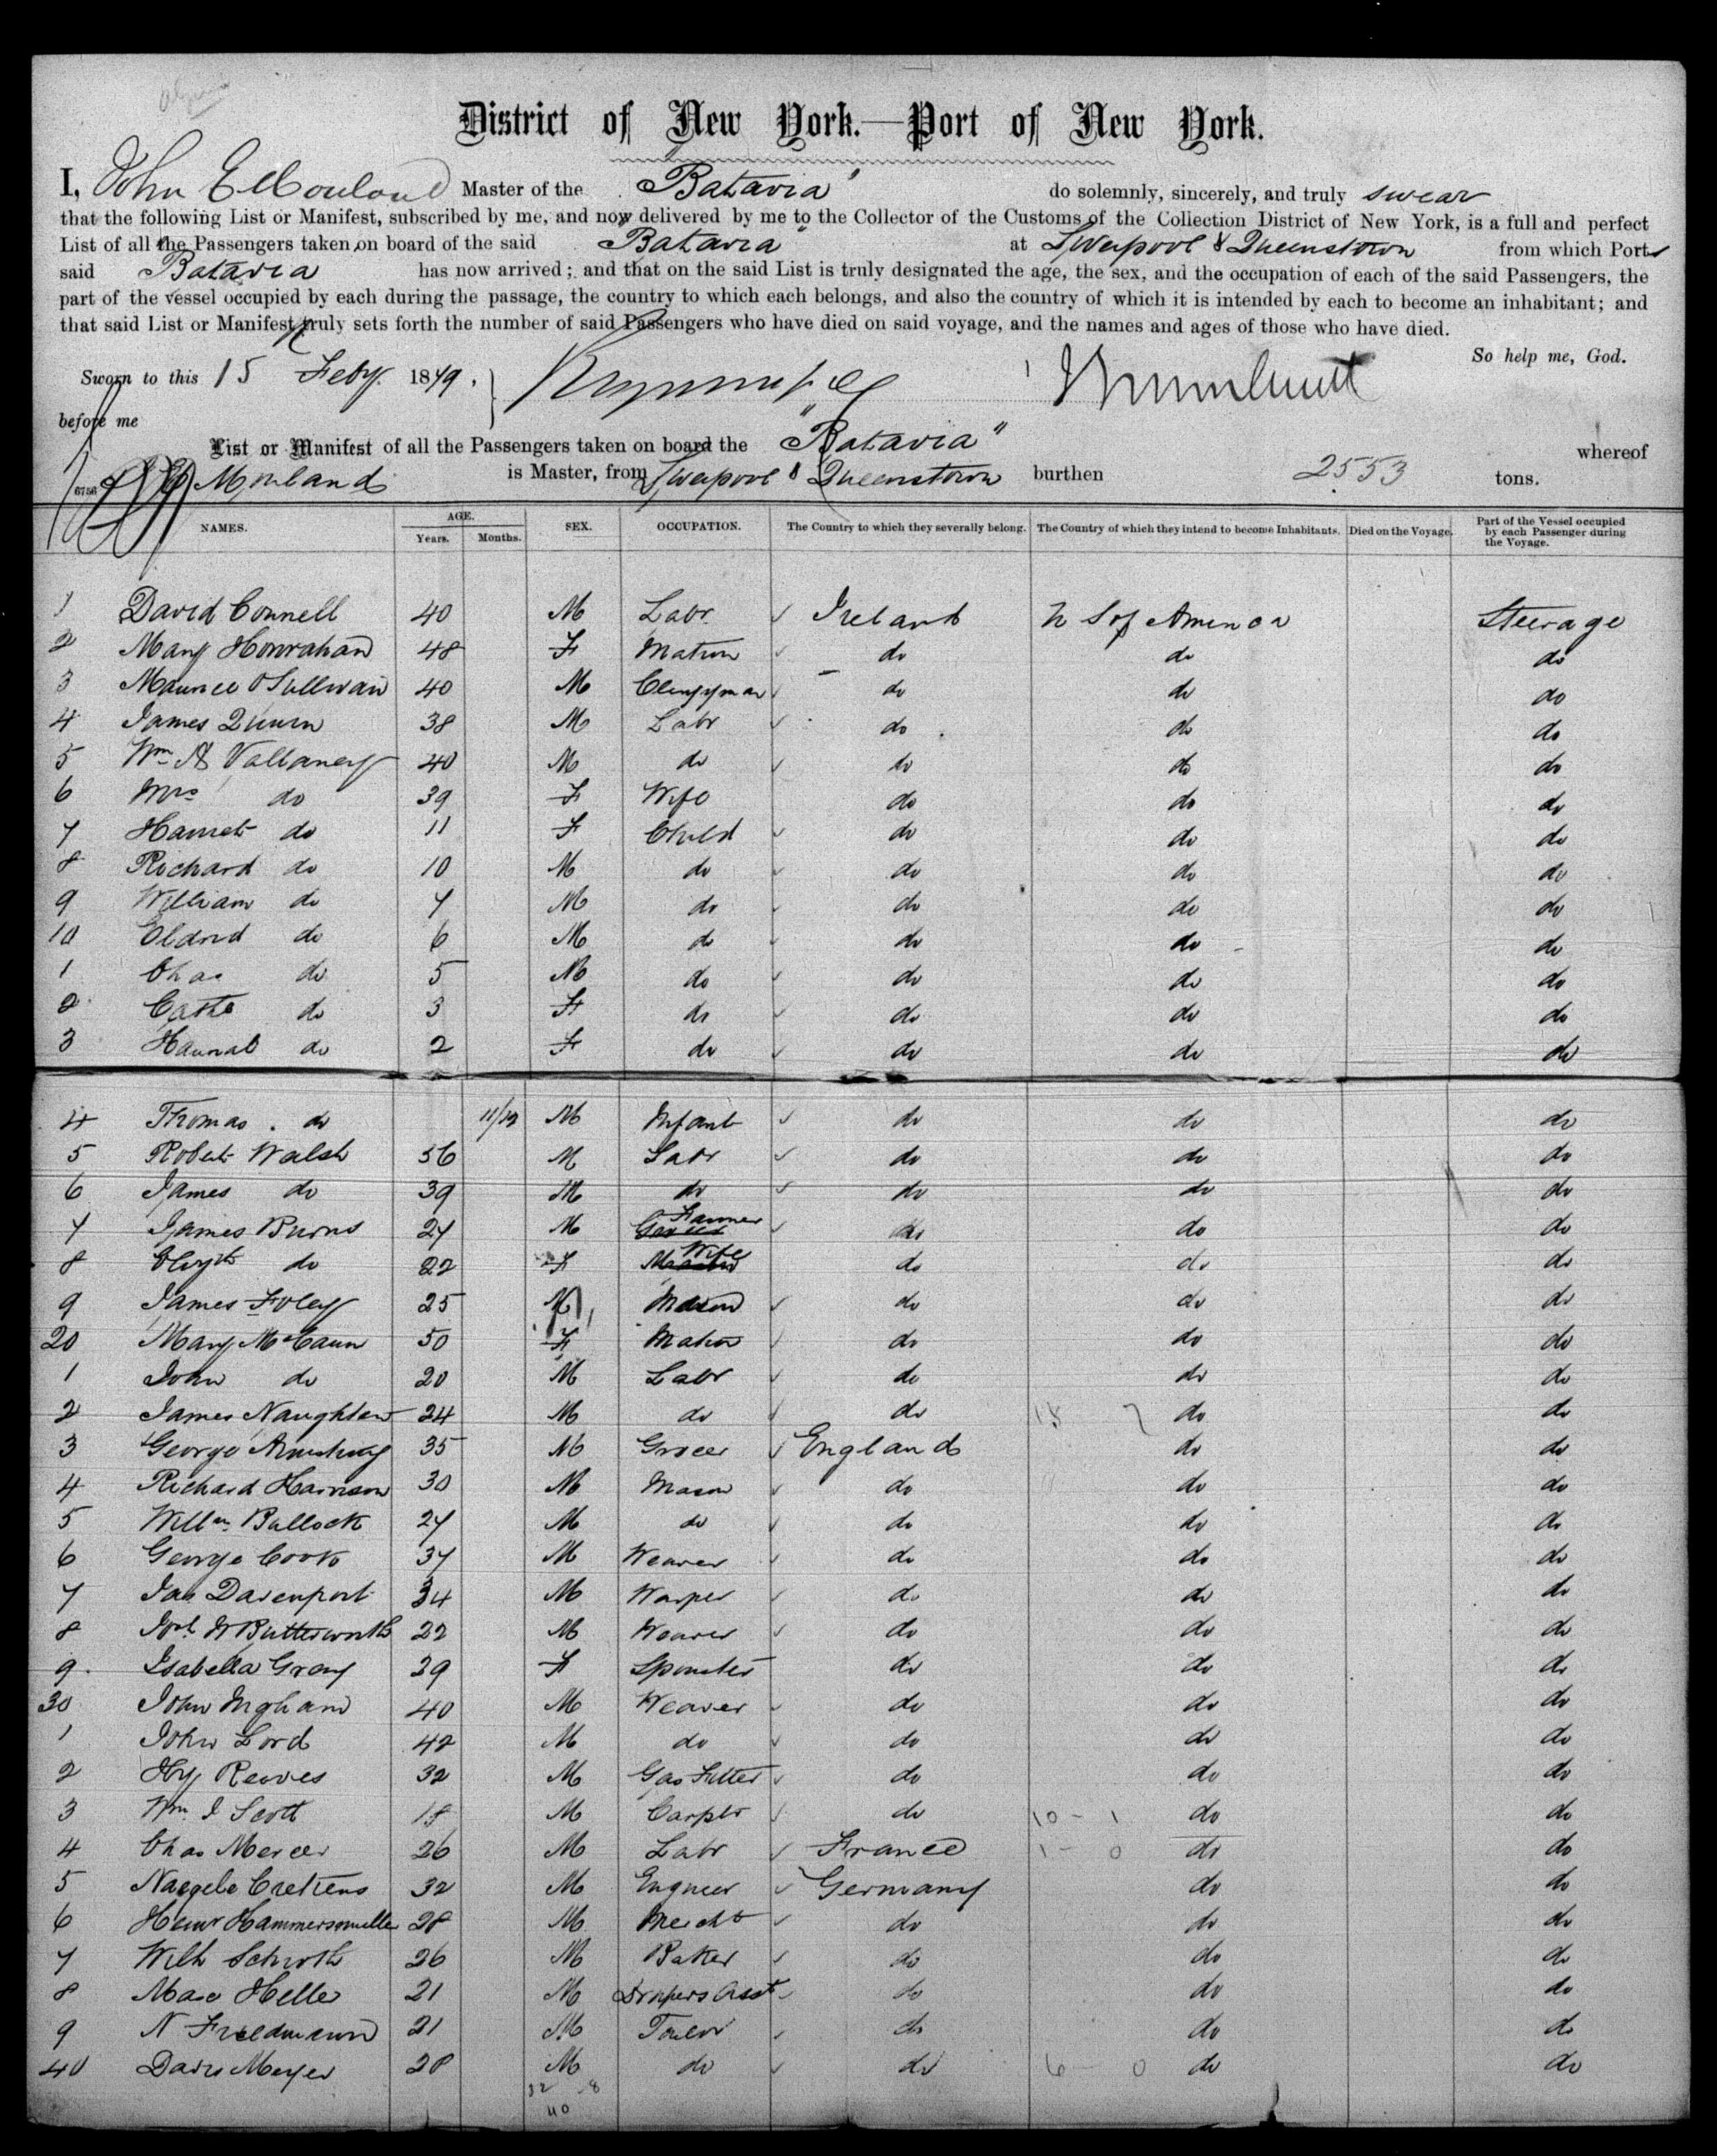 District of New York.—Port of New York.
I, John E Mouland Master of the "Batavia" do solemnly, sincerely, and truly swear
that the following List or Manifest, subscribed by me, and now delivered by me to the Collector of the Customs of the Collection District of New York, is a full and perfect
List of all the Passengers taken on board of the said "Batavia" at Liverpool & Queenstown from which Ports
said Batavia has now arrived; and that on the said List is truly designated the age, the sex, and the occupation of each of the said Passengers, the
part of the vessel occupied by each during the passage, the country to which each belongs, and also the country of which it is intended by each to become an inhabitant; and
that said List or Manifest truly sets forth the number of said Passengers who have died on said voyage, and the names and ages of those who have died.
So help me, God.
Sworn to this 15 Feby. 1879.
before me
List or Manifest of all the Passengers taken on board the "Batavia" whereof
6756 Mouland is Master, from Liverpool & Queenstown burthen 2553 tons.
NAMES. AGE. Years. Months. SEX. OCCUPATION. The Country to which they severally belong. The Country of which they intend to become Inhabitants. Died on the Voyage. Part of the Vessel occupied by each Passenger during the Voyage.
1 David Connell 40 M Labr. Ireland U S of America Steerage
2 Mary Honrahan 48 F Matron do do do
3 Maurice O Sullivan 40 M Clergyman do do do
4 James Quinn 38 M Labr do do do
5 Wm Vallaney 40 M do do do do
6 Mrs do 39 F Wife do do do
7 Harriet do 11 F Child do do do
8 Richard do 10 M do do do do
9 William do 7 M do do do do
10 Eldrid do 6 M do do do do
1 Chas do 5 M do do do do
2 Cathe do 3 F do do do do
3 Hannah do 2 F do do do do
4 Thomas do 11/12 M Infant do do do
5 Robert Walsh 56 M Labr do do do
6 James do 39 M do do do do
7 James Burns 27 M Farmer do do do
8 Elizth do 22 F Wife do do do
9 James Foley 25 M Mason do do do
20 Mary McCann 50 F Matron do do do
1 John do 20 M Labr do do do
2 James Naughton 24 M do do 15 7 do do
3 George Armstrong 35 M Grocer England do do
4 Richard Harrison 30 M Mason do do do
5 Willm Bullock 27 M do do do do
6 George Cook 37 M Weaver do do do
7 Jas Davenport 34 M Warper do do do
8 Josh W Butterworth 22 M Weaver do do do
9 Isabella Gray 29 F Spinster do do do
30 John Ingham 40 M Weaver do do do
1 John Lord 42 M do do do do
2 Hy Reeves 32 M Gas Fitter do do do
3 Wm J Scott 18 M Carptr do 10 - 1 do do
4 Chas Mercer 26 M Labr France 1 - 0 do do
5 Naegele Cretiens 32 M Engineer Germany do do
6 Heinr Hammersmuller 28 M Mercht do do do
7 Wilh Schroth 26 M Baker do do do
8 Max Heller 21 M Drapers Asst do do do
9 N Friedmann 21 M Tailor do do do
40 David Meyer 28 M do do 6 - 0 do do
32 8
40